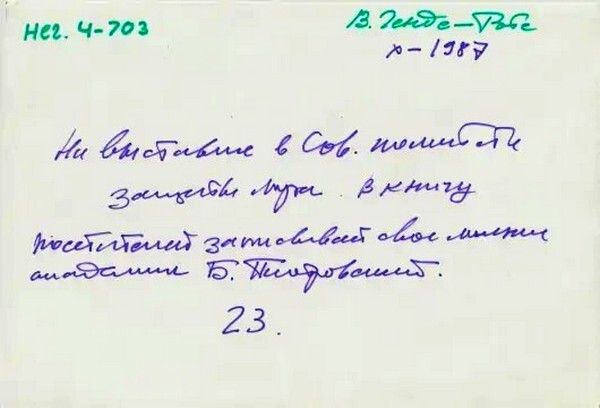 Нег. 4-703
В. Генде-Роте
X-1987
На выставке в Сов. комитете
защиты мира. В книгу
посетителей записывает свое мнение
академик Б. Пиотровский.
23.